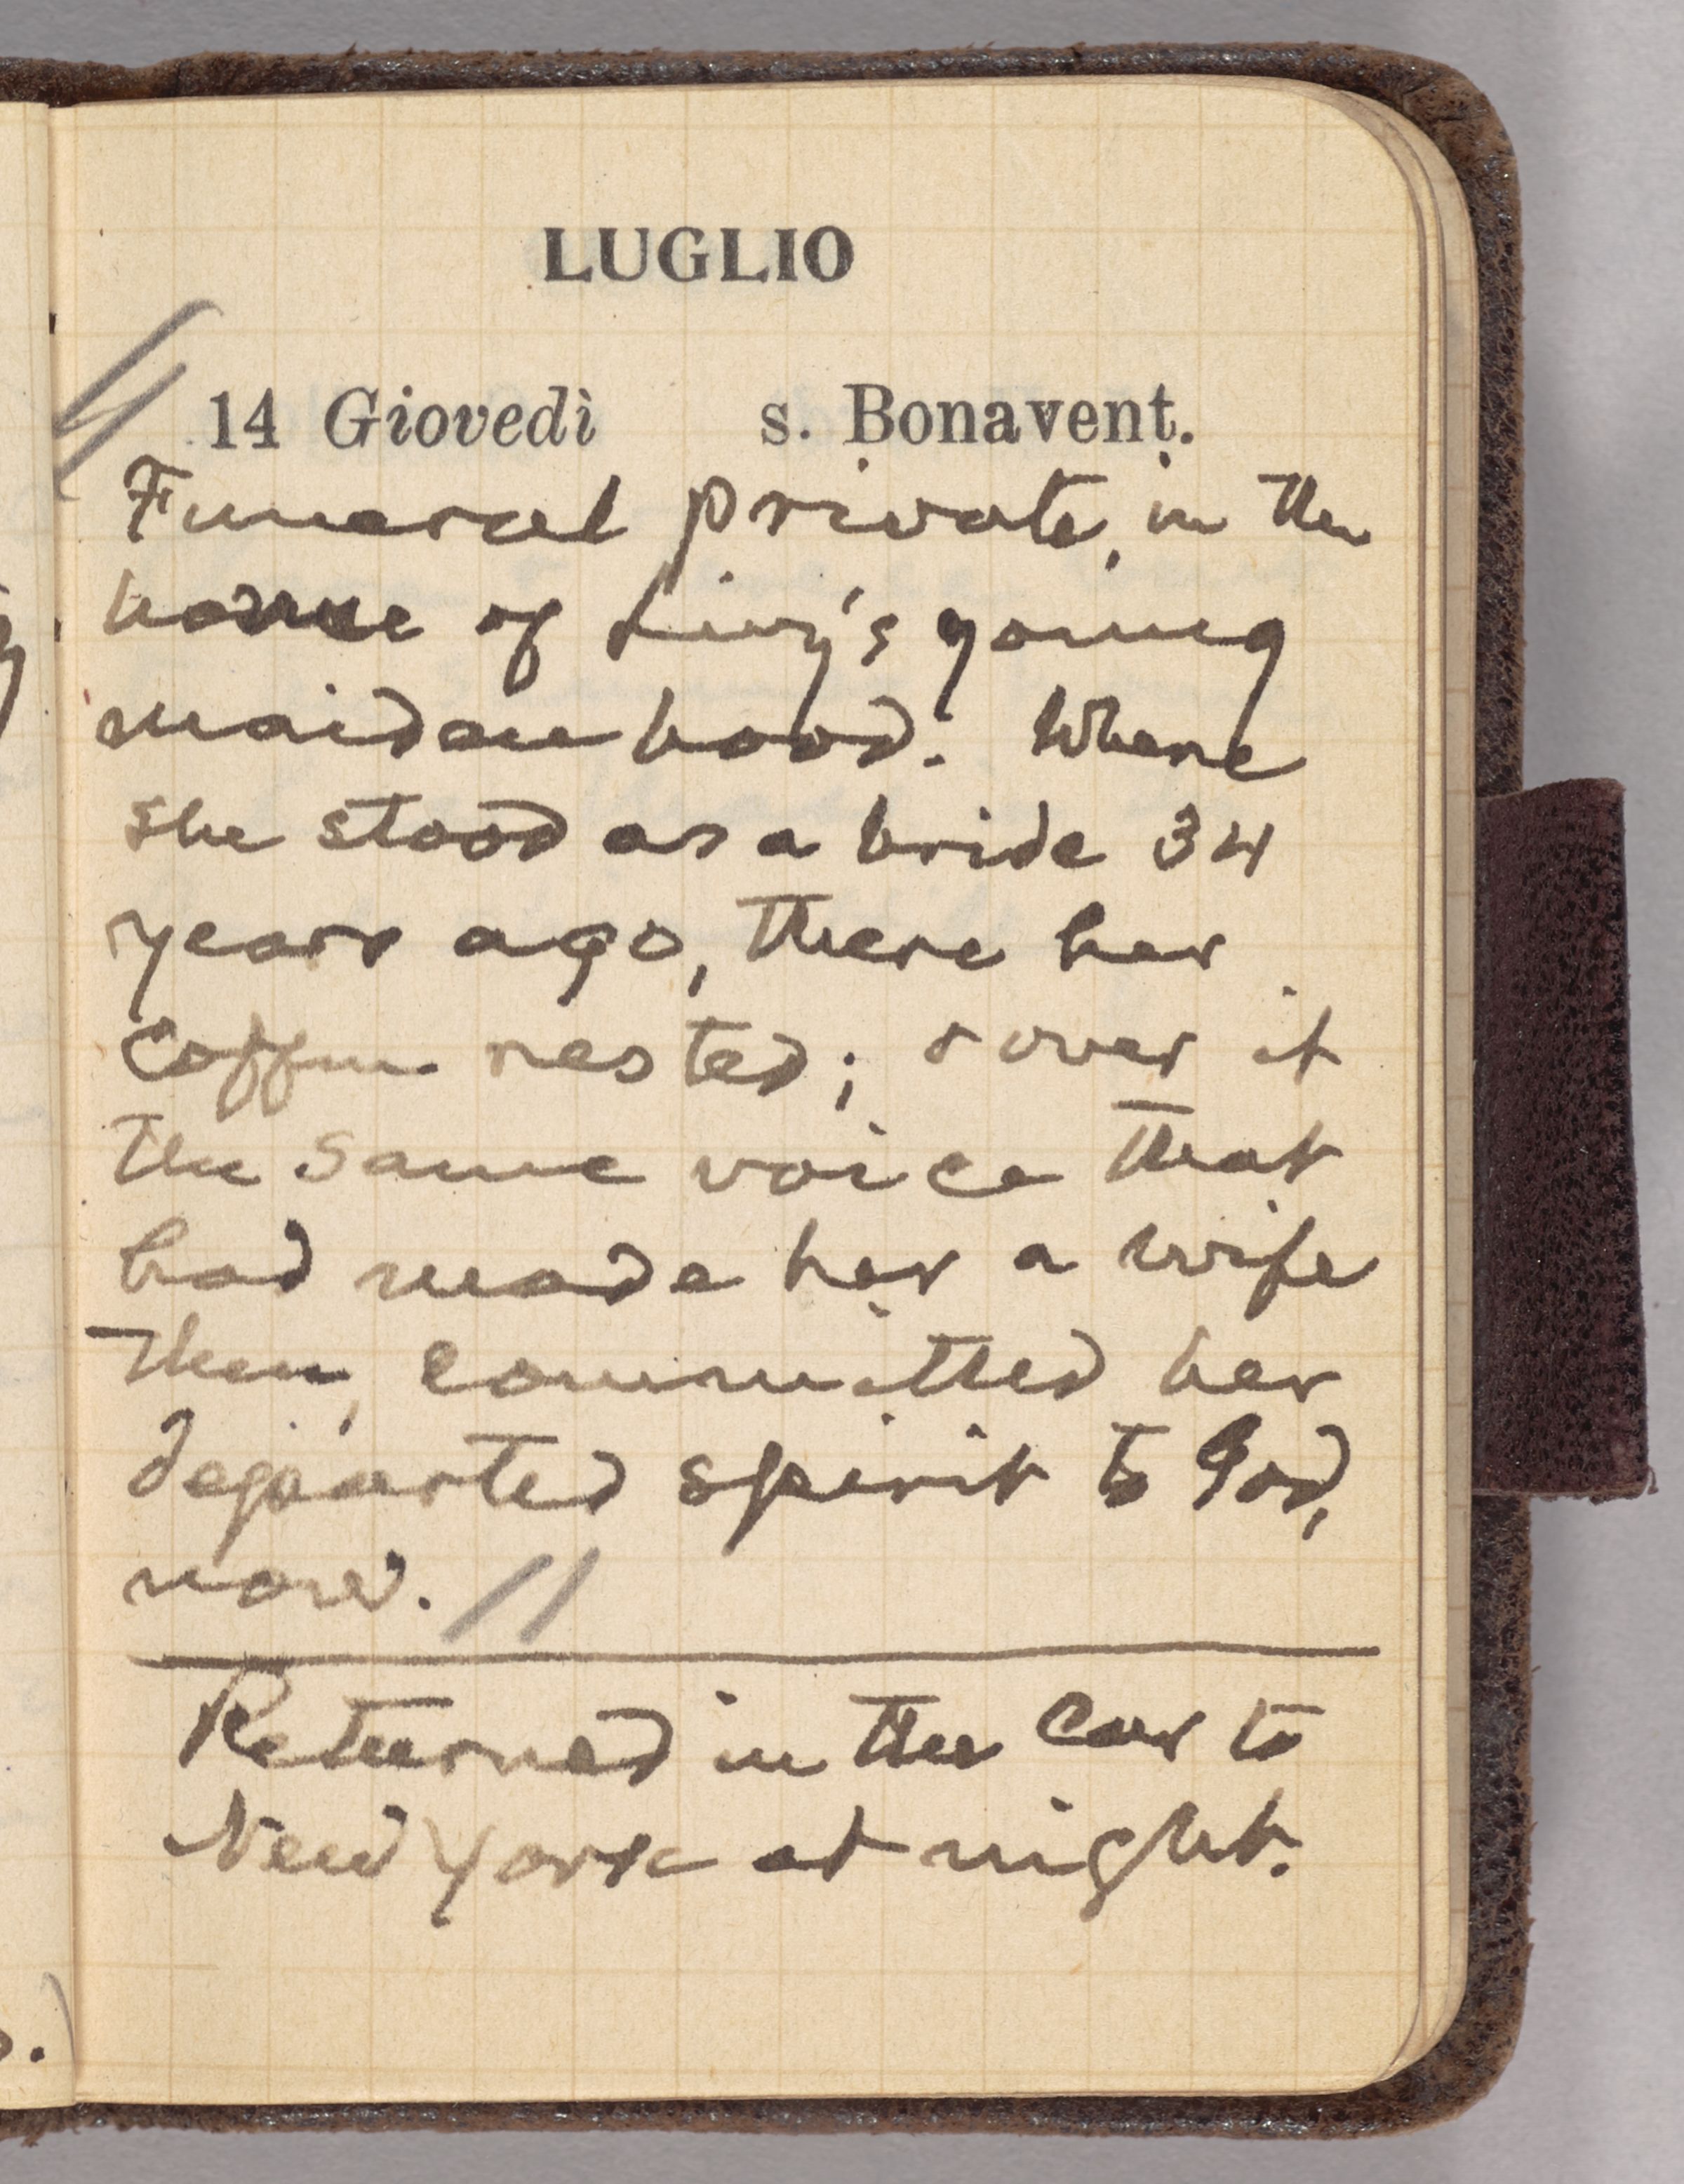 LUGLIO
14 Giovedì s. Bonavent.
Funeral private, in the
house of Livy's young
maidenhood. Where
she stood as a bride 34
years ago, there her
coffin rested; & over it
the same voice that
had made her a wife
then, committed her
departed spirit to God,
now. //
Returned in the car to
New York at night.